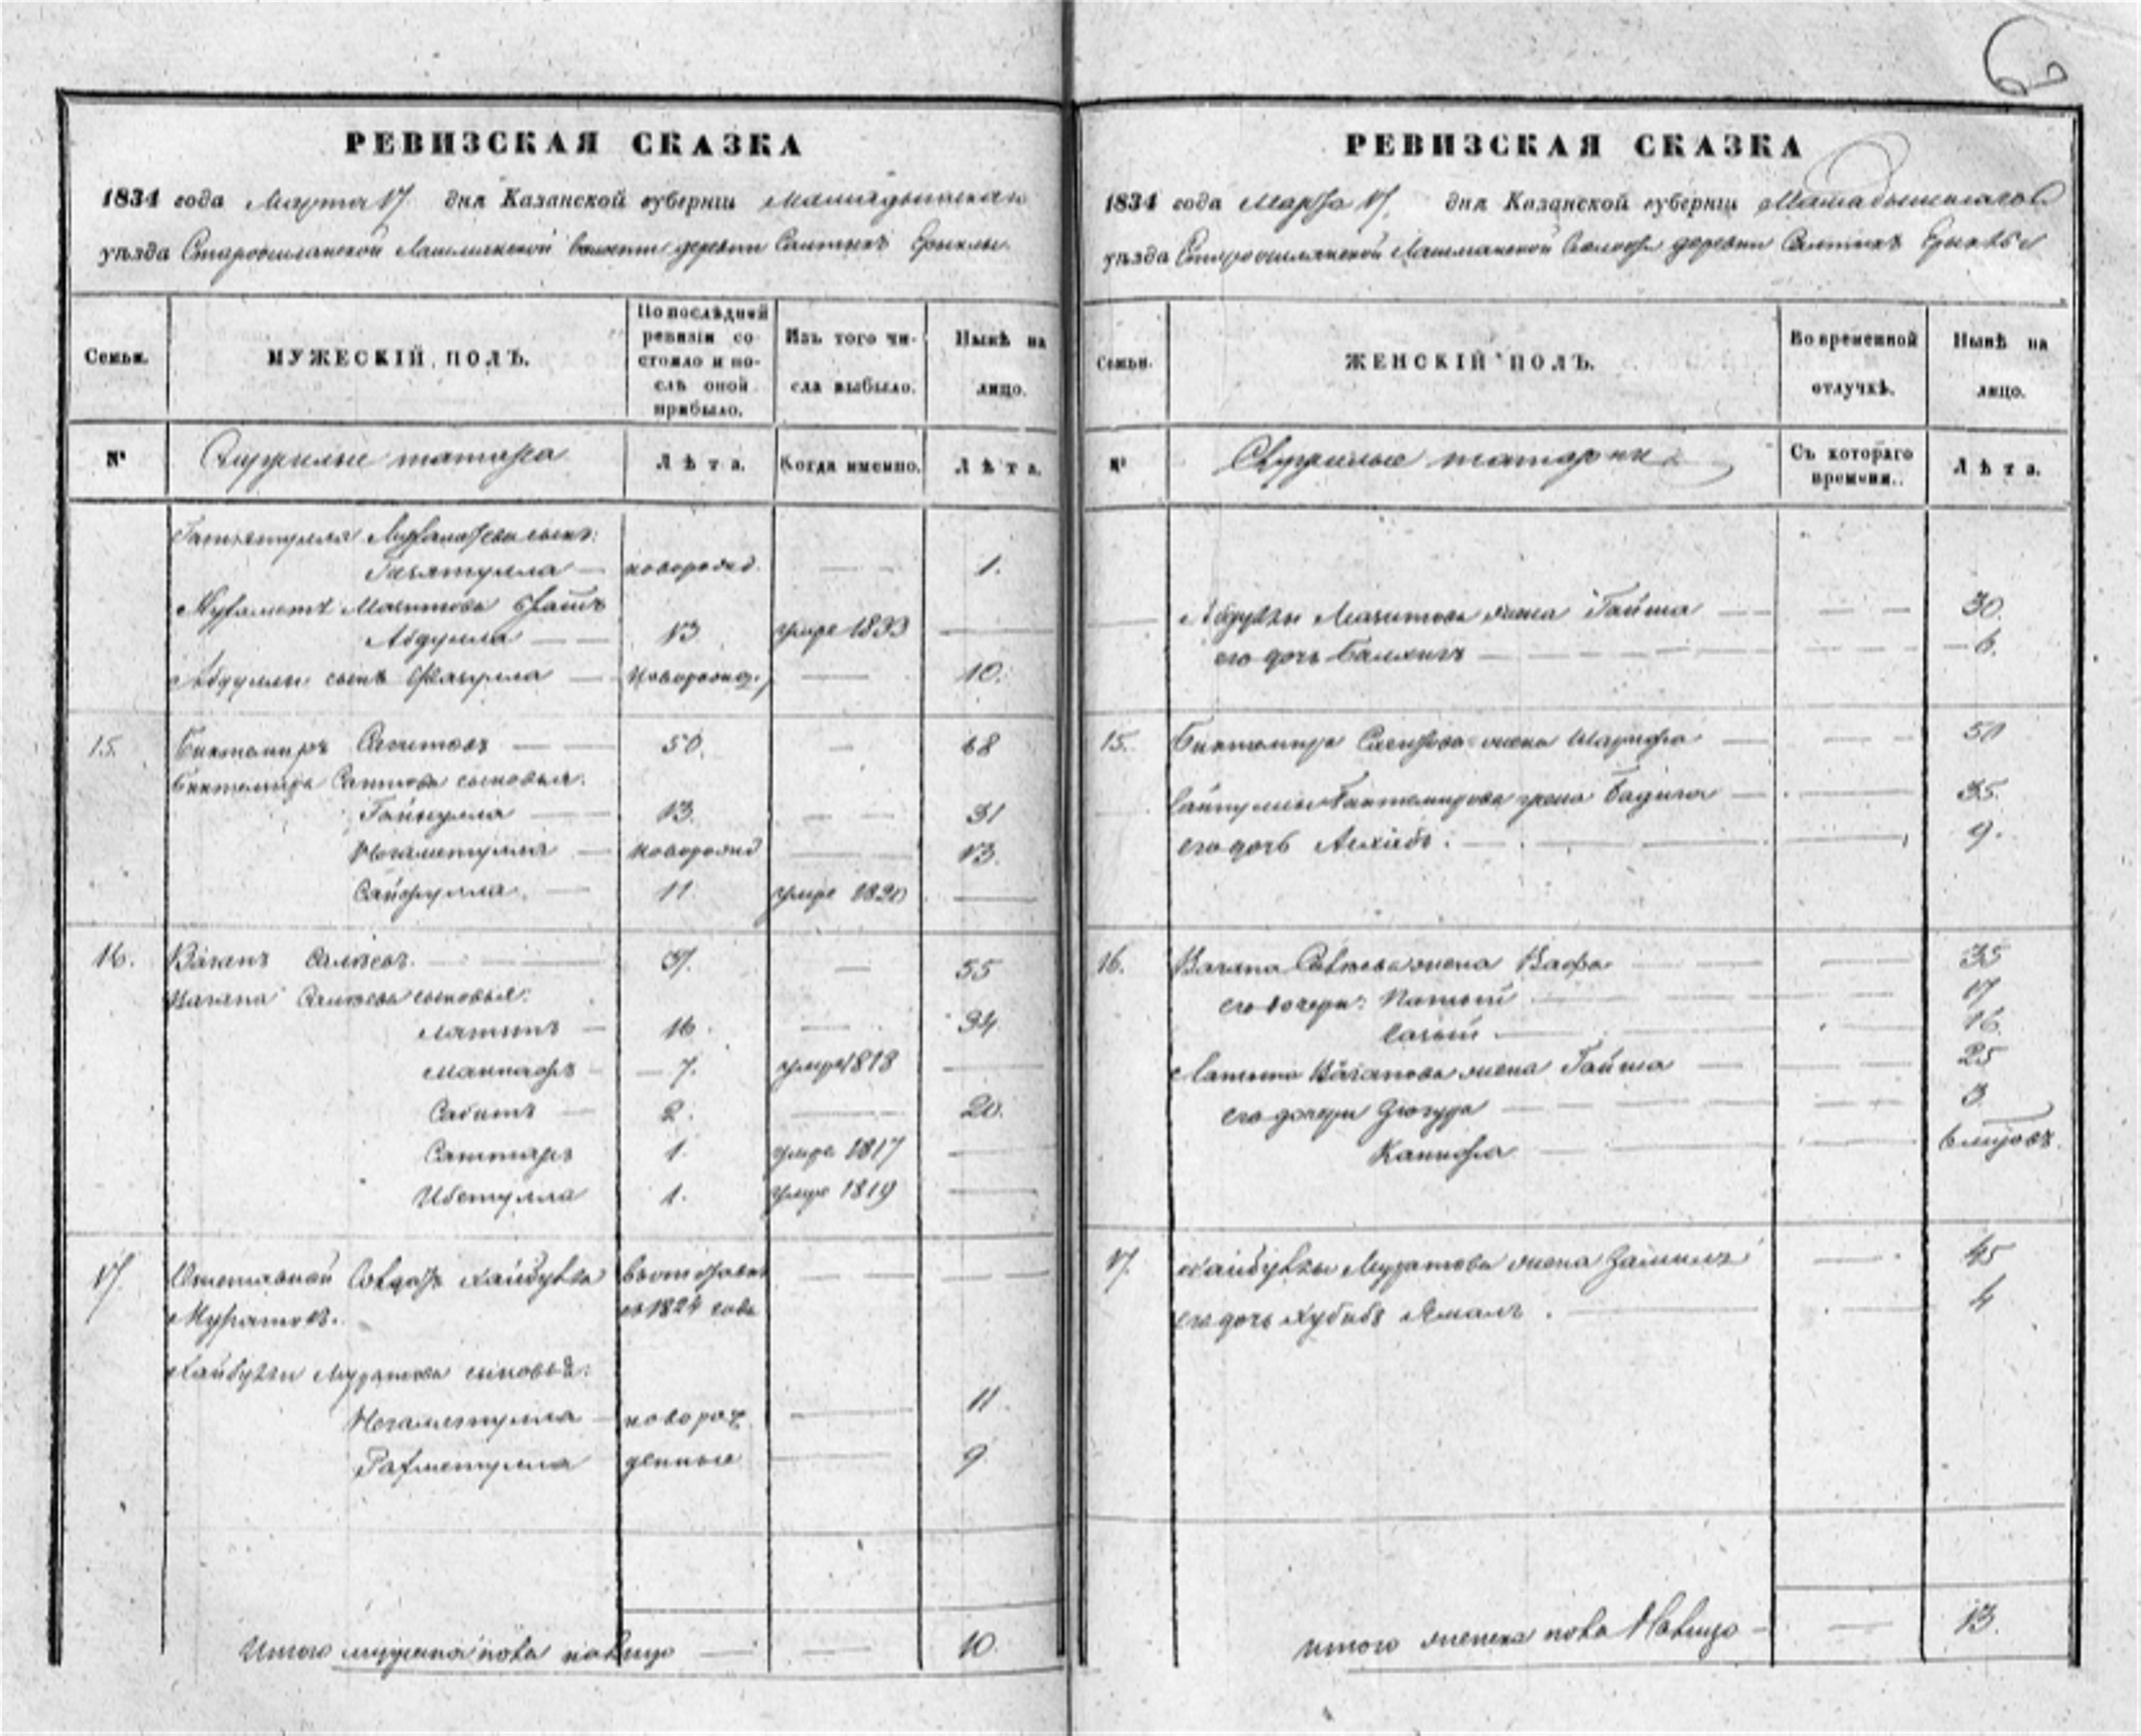 6
РЕВИЗСКАЯ СКАЗКА
1834 года Марта 17 дня Казанской губернии Мамадышскаго
уѣзда Староошланской Лашманской волости деревни Салтыкъ Ерыклы
Семьи.
МУЖЕСКІЙ ПОЛЪ.
По послѣдней ревизіи состояло и послѣ оной прибыло.
Изъ того числа выбыло.
Нынѣ на лицо.
№
Служилые татара
Лѣта.
Когда именно.
Лѣта.
сынъ:
новорожд. — 1.
Мухаметъ Маситова братъ
Абдулла — 13 умре 1833 —
Абдуллы сынъ — новорожд. — 10.
15. Биктемиръ Сагитовъ — 50. — 68
Биктемира Сагитова сыновья:
Гайнулла — 13. — 31
Негаметулла — новорожд — 13.
Сайфулла — 11. умре 1820 —
16. Ваганъ — 37. — 55
Вагана сыновья:
Латыпъ — 16. — 34
Маннафъ — 7. умре 1818 —
Сабитъ — 2. — 20.
Саттаръ 1. умре 1817 —
Ибетулла 1. умре 1819 —
17. Отставной Солдатъ Хайбулла
Муратовъ. съ 1824 года
Хайбуллы Муратова сыновья:
Негаметулла — новорож — 11.
Рахметулла денные — 9
Итого мужеска пола налицо — — 10.
РЕВИЗСКАЯ СКАЗКА
1834 года Марта 17. дня Казанской губерніи Мамадышскаго
уѣзда Староошланской Лашманской волости деревни Салтыкъ Ерыклы
Семьи.
ЖЕНСКІЙ ПОЛЪ.
Во временной отлучкѣ.
Нынѣ на лицо.
№
Служилые татарки
Съ котораго времени.
Лѣта.
Абдуллы Маситова жена Гайша — — 30.
его дочь — — 6.
15. Биктемира Сагитова жена — — 50
Биктемирова жена Бадига — — 35.
его дочь — — 9.
16. Вагана жена Вафа — — 35
его дочери: — — 17
— — 16.
Латыпа Ваганова жена Гайша — — 25
его дочери — — 3.
— — 6 мѣсяцъ.
17. Хайбуллы Муратова жена — 45
его дочь Хубибъ Ямалъ. — 4
итого женска пола Налицо — — 13.